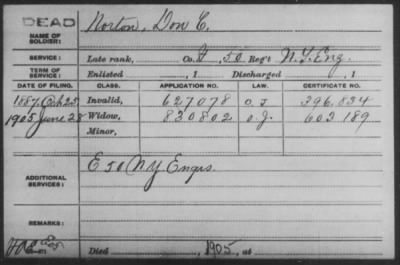 DEAD
NAME OF SOLDIER: Norton, Don C.
SERVICE: Late rank, Co. I, 50 Reg't N.Y. Eng.
TERM OF SERVICE: Enlisted , 1 Discharged , 1
DATE OF FILING. CLASS. APPLICATION NO. LAW. CERTIFICATE NO.
1887, Oct 25 Invalid, 627078 O.J 396.834
1905 June 28 Widow, 830802 O.J. 603189
Minor,
E 50 N Y Engrs.
ADDITIONAL SERVICES:
REMARKS:
Died , 1905, at